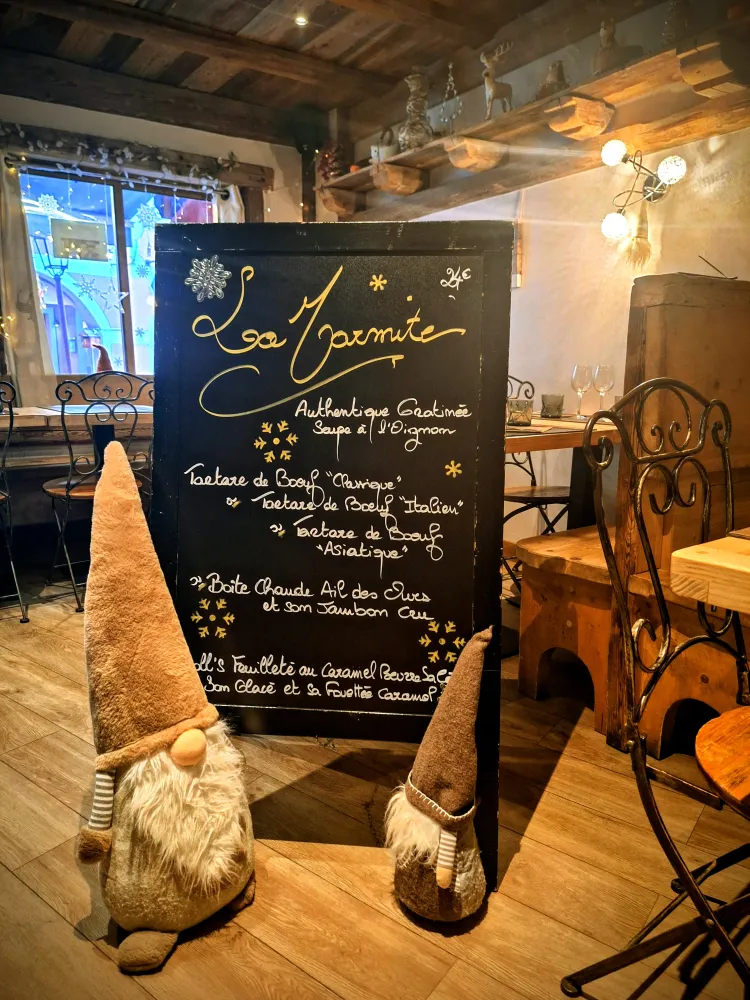 24€
La Marmite
Authentique Gratinée
Soupe à l'Oignon
Tartare de Bœuf "Classique"
Tartare de Bœuf "Italien"
Tartare de Bœuf
"Asiatique"
Boîte Chaude Ail des Ours
et son Jambon Cru
oll's Feuilleté au Caramel Beurre Sa
Son Glacé et Sa Fouettée Caramel